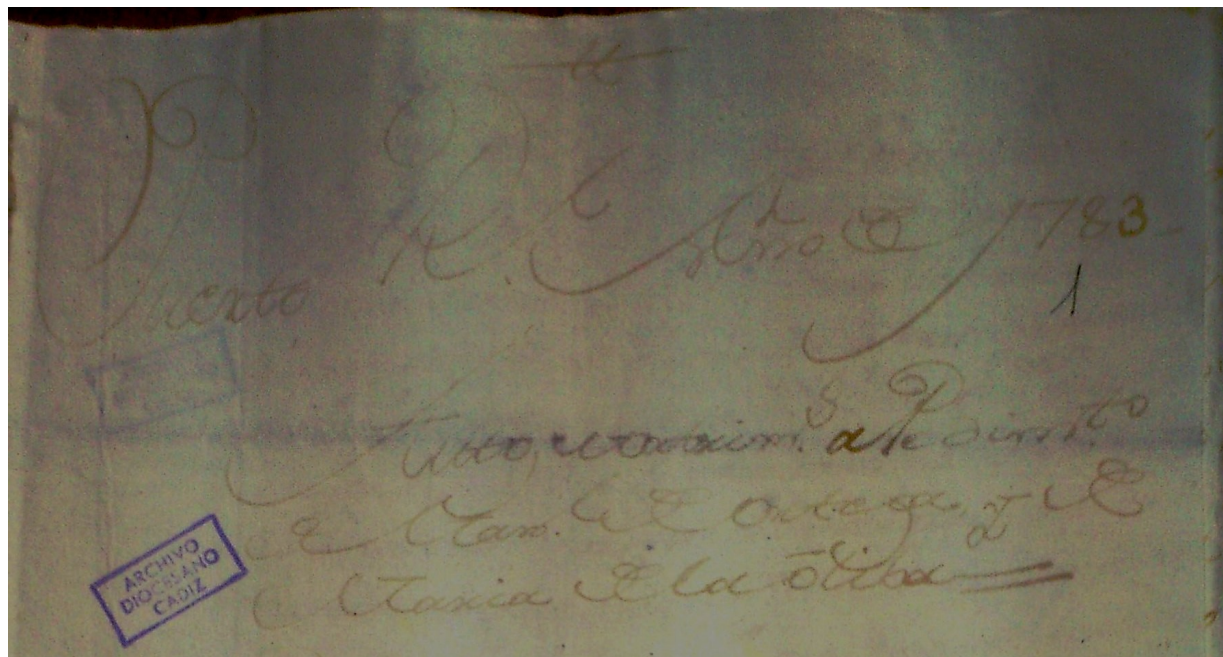 Puerto R.l Año de 1783
1
Autos matrim.s a Pedim.to
de Man.l de Ortega y de
Maria de la Oliba
ARCHIVO
DIOCESANO
CADIZ